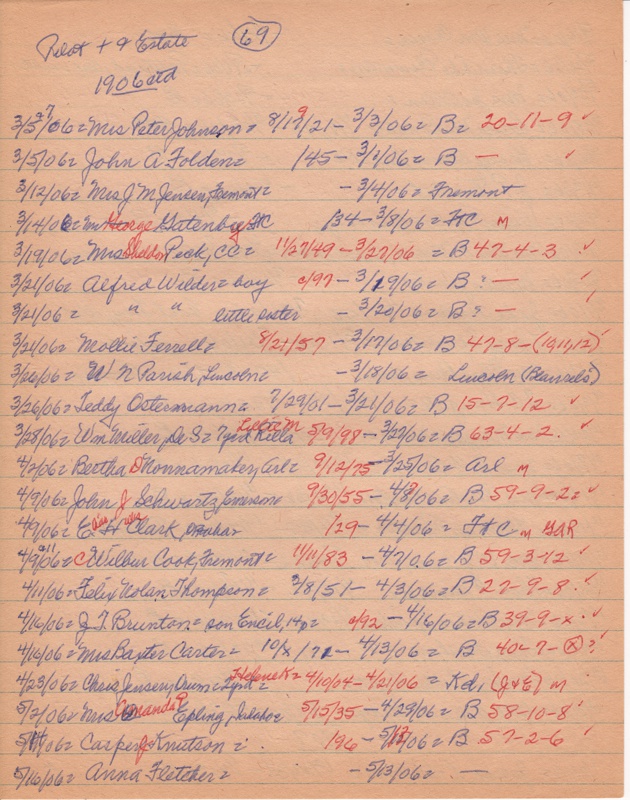 Pilot + & Estate 69
1906 etd
3/5 + 7/06 = Mrs Peter Johnson = 8/19/21 - 3/3/06 = B = 20-11-9 ✓
3/5/06 = John A Folden = /45 - 3/1/06 = B — ✓
3/12/06 = Mrs J M Jensen, Fremont = - 3/4/06 = Fremont
3/14/06 = George Gatenby, FC /34 - 3/8/06 = FC M
3/19/06 = Mrs Sheldon Peck, CC = 11/27/49 - 3/27/06 = B 47-4-3 ✓
3/21/06 = Alfred Wilder = boy c/97 - 3/19/06 = B ? —
3/21/06 = " " little sister - 3/20/06 = B ? —
3/21/06 = Mollie Ferrell = 8/21/57 - 3/17/06 = B 47-8-(10,11,12) ✓
3/26/06 = W N Parish, Lincoln = - 3/18/06 = Lincoln
3/26/06 = Teddy Ostermann = 7/29/01 - 3/21/06 = B 15-7-12 ✓
3/28/06 = Wm Miller, De S = Lettie M 5/9/98 - 3/27/06 = B 63-4-2. ✓
4/2/06 = Bertha D Nonnamaker, Arl = 9/12/75 - 3/25/06 = Arl M
4/9/06 = John J Schwartz, Emerson 9/30/55 - 4/8/06 = B 59-9-2 = ✓
4/9/06 = E Clark, Omaha /29 - 4/4/06 = FC M GAR
4/9 + 11/06 = C Wilbur Cook, Fremont = 11/11/83 - 4/7/06 = B 59-3-12 ✓
4/11/06 = Felix Nolan Thompson = 2/8/51 - 4/3/06 = B 27-9-8. ✓
4/16/06 = J T Brunton = son Encil, 14y = c/92 - 4/16/06 = B 39-9-x. ✓
4/16/06 = Mrs Baxter Carter = 10/x/71 - 4/13/06 = B 40-7-x ? ✓
4/23/06 = Chris Jensen, Orum = Helene K = 4/10/04 - 4/21/06 = Kd, (J & E) M
5/2/06 = Mrs Amanda P Epling, Idaho = 5/15/35 - 4/29/06 = B 58-10-8 ✓
5/06 = Casper J Knutson = 1/96 - 5/06 = B 57-2-6 ✓
5/16/06 = Anna Fletcher = - 5/13/06 = —